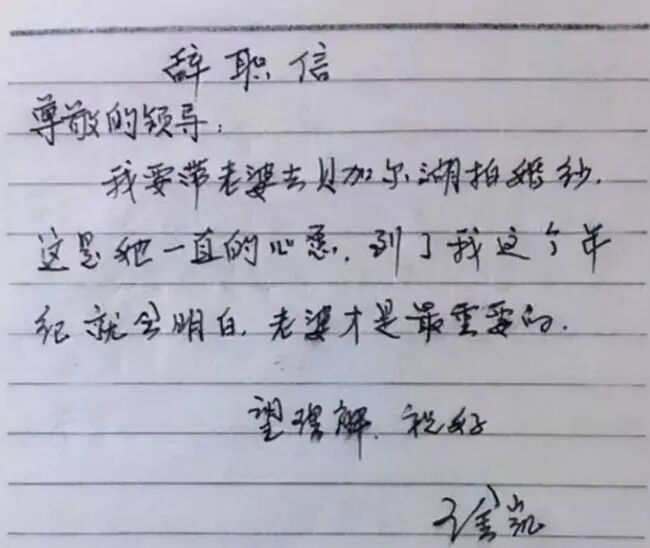 辞职信
尊敬的领导:
我要带老婆去贝加尔湖拍婚纱.
这是她一直的心愿.到了我这个年
纪就会明白.老婆才是最重要的.
望理解.祝好
凯